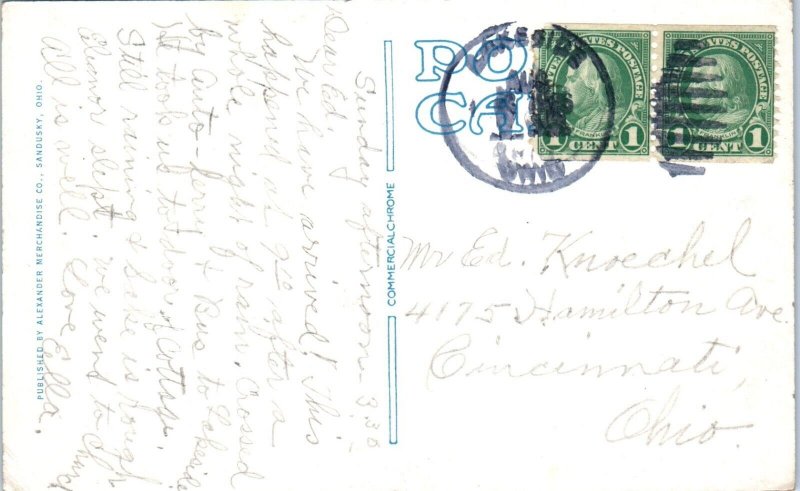 Sunday afternoon 3.30
Dear Ed,
We have arrived! This
happened 9 after a
whole night of rain. Crossed
by auto-ferry & Bus to Lakeside
It took us to door of Cottage.
Still raining & Lake is rough
Elenor slept. We went to
All is well. Love Ella.
PUBLISHED BY ALEXANDER MERCHANDISE CO., SANDUSKY, OHIO.
COMMERCIALCHROME
PO
CA
LAKESIDE
AUG
OHIO
UNITED STATES POSTAGE
FRANKLIN
1 CENT 1
UNITED STATES POSTAGE
FRANKLIN
1 CENT 1
Mr Ed. Knoechel
4175 Hamilton Ave.
Cincinnati,
Ohio.